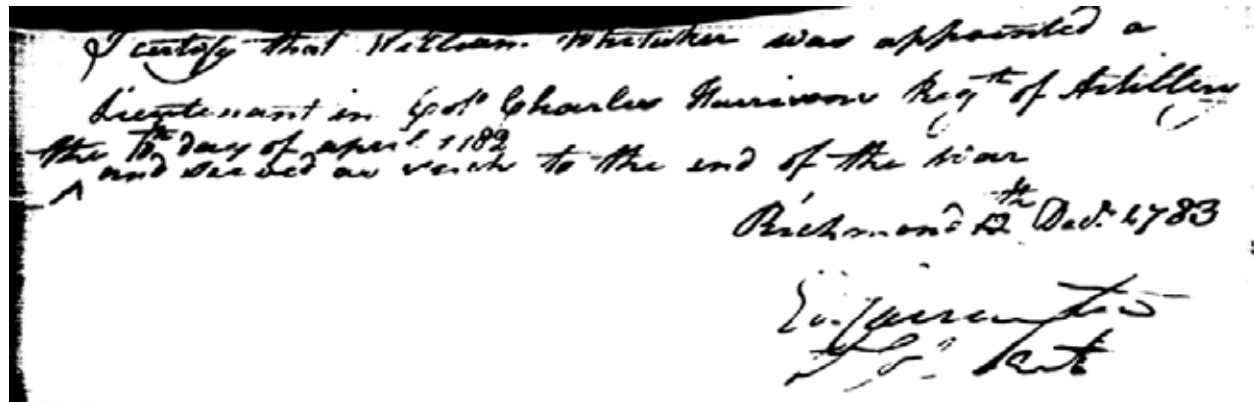 I certify that William Whitaker was appointed a
Lieutenant in Colo Charles Harrisons Regt of Artillery
the 10th day of april 1782
and served as such to the end of the war
Richmond 12th Decr 1783
Ed. Carrington
Lt. Col. Art